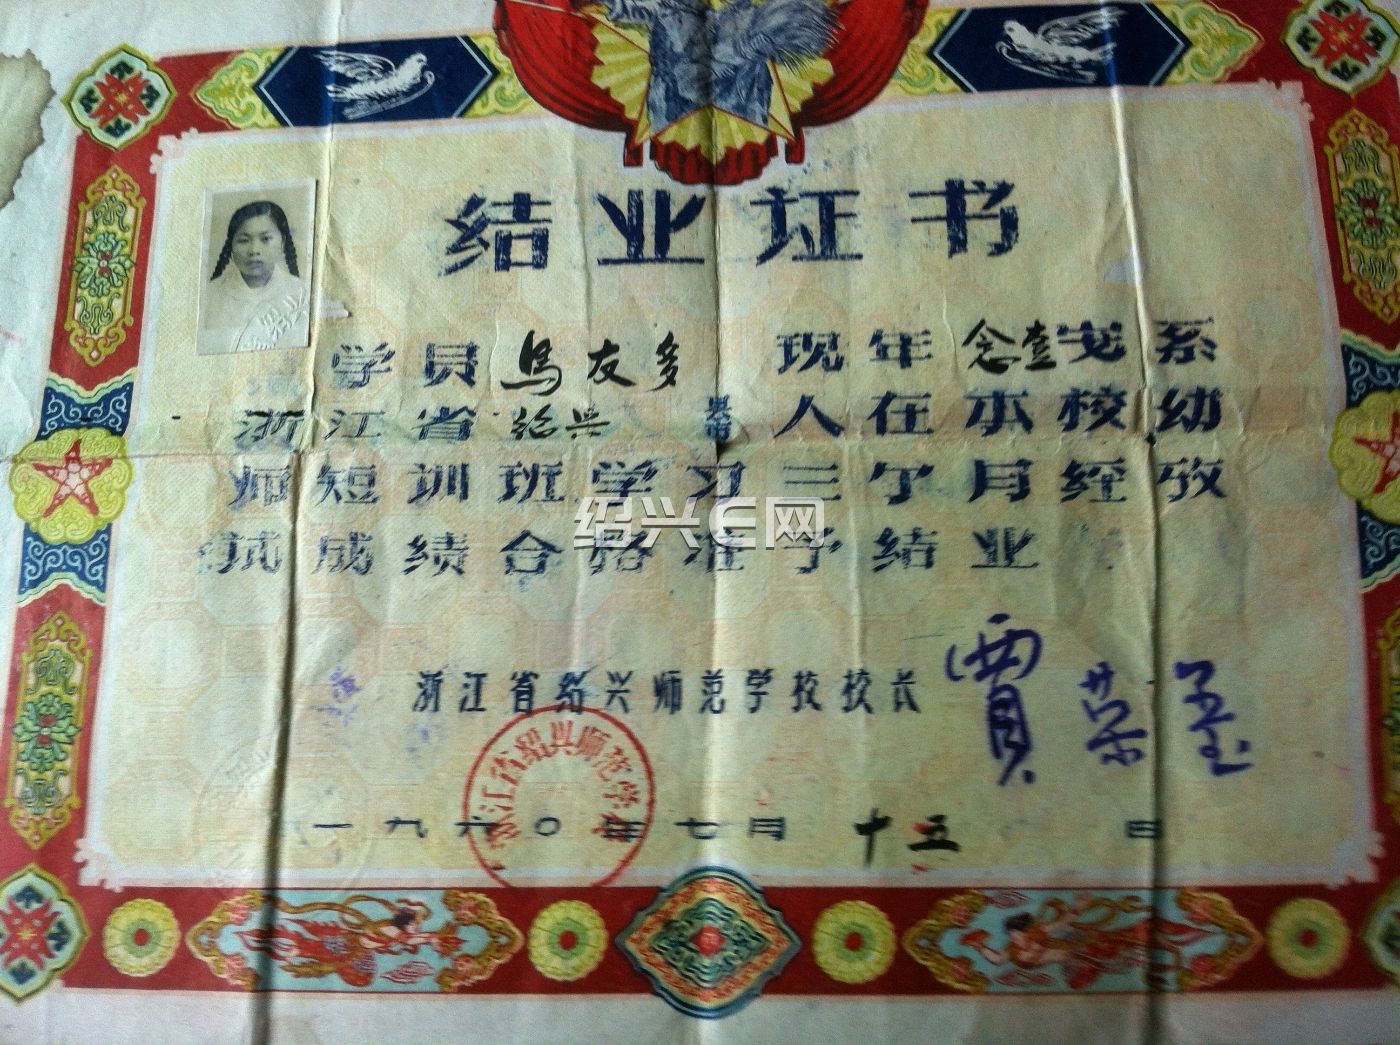 结业证书
学员 冯友多 现年 念壹 岁系
浙江省 绍兴 县市 人在本校幼
师短训班学习三个月经攷
试成绩合格准予结业
浙江省绍兴师范学校校长 賈荣玉
浙江省绍兴师范学校
一九六〇年七月 十五 日
绍兴E网